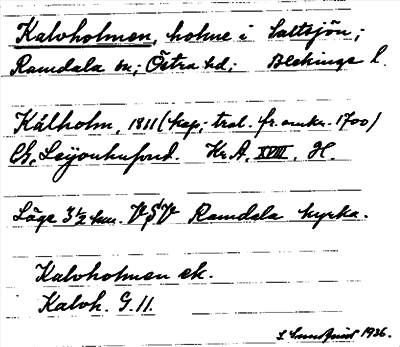 Kalvholmen, holme i Saltsjön;
Ramdala sn; Östra hd; Blekinge l.
Kålholm, 1811 (kop; trol. fr. omkr. 1700)
Ch. Leijonhufvud. Kr. A. XVIII, H.
Läge 3 1/2 km. VSV Ramdala kyrka.
Kalvholmen ek.
Kalvh. G. 11.
1936.